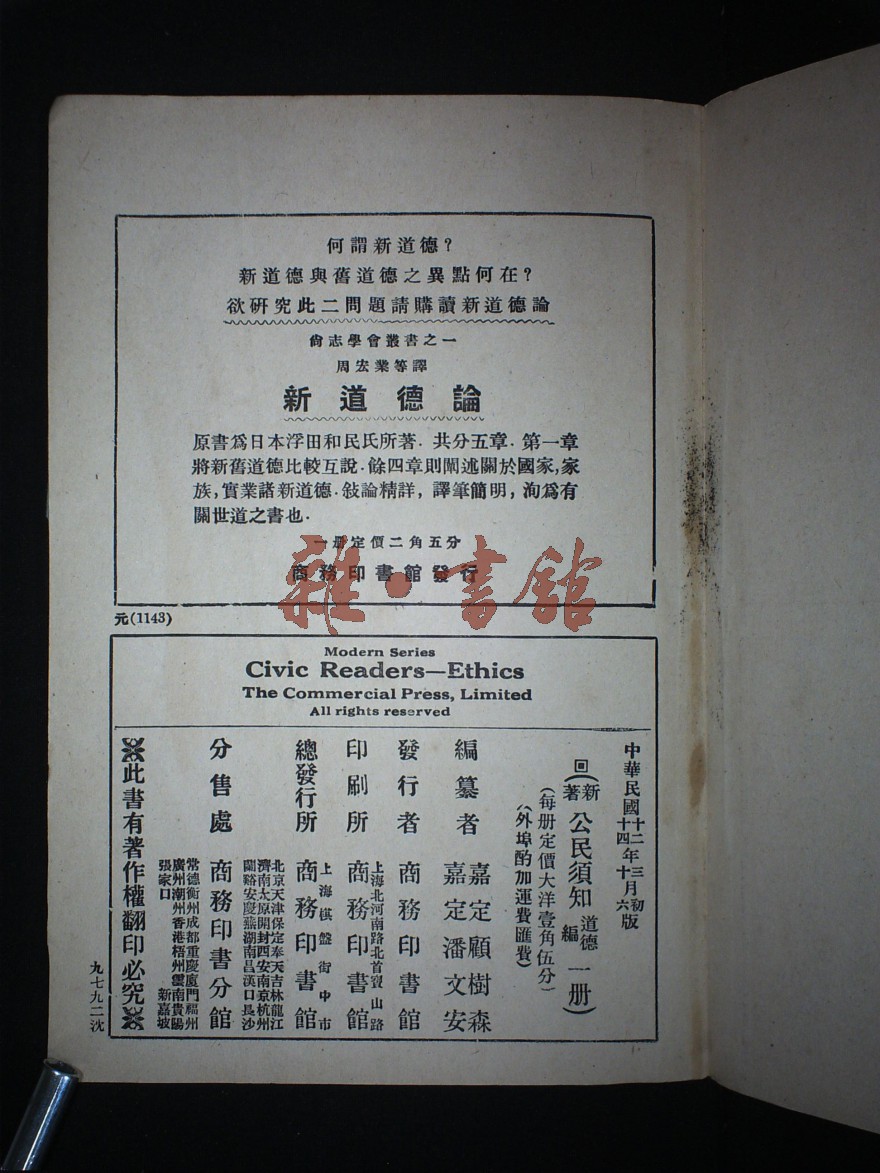 何謂新道德？
新道德與舊道德之異點何在？
欲硏究此二問題請購讀新道德論
尙志學會叢書之一
周宏業等譯
新道德論
原書爲日本浮田和民氏所著．共分五章．第一章
將新舊道德比較互說．餘四章則闡述關於國家，家
族，實業諸新道德．敍論精詳，譯筆簡明，洵爲有
關世道之書也．
一册定價二角五分
商務印書館發行
雜·書館
元(1143)
Modern Series
Civic Readers—Ethics
The Commercial Press, Limited
All rights reserved
中華民國十二年三月初版
十四年十月六版
回(新著公民須知道德編一册)
(每册定價大洋壹角伍分)
(外埠酌加運費匯費)
編纂者 嘉定顧樹森
嘉定潘文安
發行者 商務印書館
印刷所 上海北河南路北首寶山路
商務印書館
總發行所 上海棋盤街中市
商務印書館
分售處 商務印書分館
北京天津保定奉天吉林龍江
濟南太原開封西安南京杭州
蘭谿安慶蕪湖南昌漢口長沙
常德衡州成都重慶廈門福州
廣州潮州香港梧州雲南貴陽
張家口 新嘉坡
此書有著作權翻印必究
九七九二沈